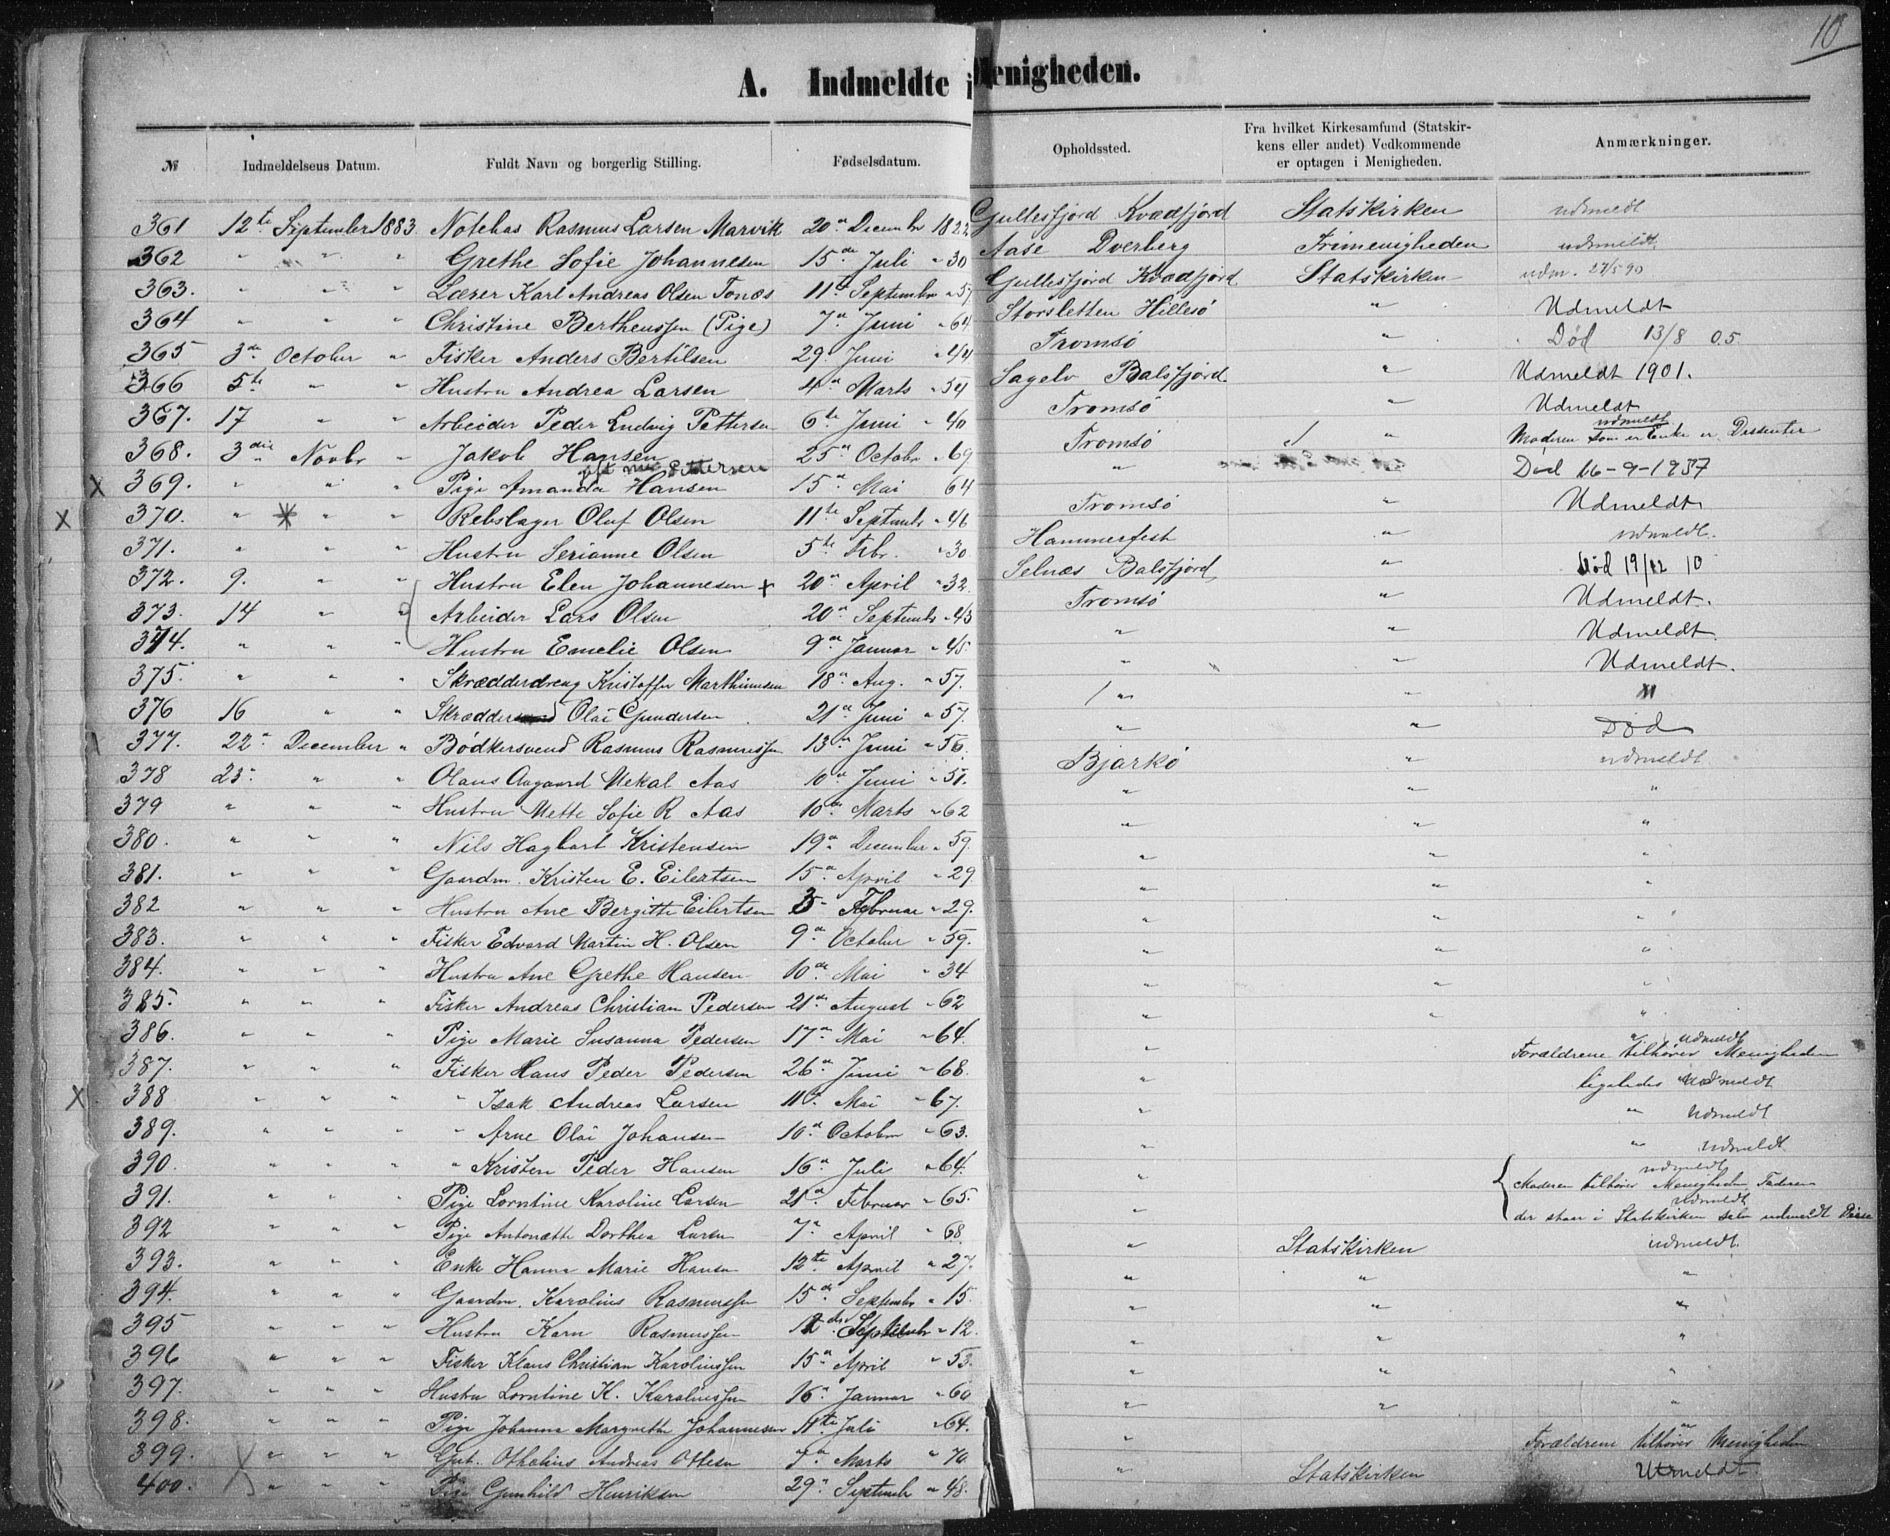 10
A. Indmeldte i Menigheden.
№ Indmeldelsens Datum. Fuldt Navn og borgerlig Stilling. Fødselsdatum. Opholdssted. Fra hvilket Kirkesamfund (Statskirkens eller andet) Vedkommende er optagen i Menigheden. Anmærkninger.
361 12te September 1883 Rasmus Larsen Marvik 20de Decembr 1822 Gullesfjord Kvædfjord Statskirken udmeldt
362 " " " Grethe Sofie Johannesen 15de Juli " 30 Aase Dverberg Frimenigheden udmeldt
363. " " " Lærer Karl Andreas Olsen Tonæs 11te Septembr " 57 Gullesfjord Kvædfjord Statskirken udm. 27/5 90
364 " " " Christine Bertheussen (Pige) 7de Juni " 64 Storsletten Hillesø " Udmeldt
365 3de October " Fisker Anders Bertilsen 29. Juni Tromsø " Død 13/8 05
366 5te " " Hustru Andrea Larsen 4de Marts " 54 Sagelv Balsfjord " Udmeldt 1901.
367. 17 " " Arbeider Peder Ludvig Pettersen 6te Juni " 40 Tromsø " Udmeldt
368. 3die Novbr " Jakob Hansen 25de Octobr " 69 Tromsø " Moderen som er Enke er Dissenter udmeldt
gift med Pettersen
x 369. " " " Pige Amanda Hansen 15de Mai 64 " Død 16-9-1937
x 370. " " " Rebslager Oluf Olsen 11te Septembr " 46 Tromsø " Udmeldt
371. " " " Hustru Serianne Olsen 5te Febr. " 30 Hammerfest " udmeldt.
372. 9. " " Hustru Elen Johannesen x 20de April " 32 Selnæs Balsfjord " Død 19/12 10
373. 14 " " Arbeider Lars Olsen 20de Septembr " 43 Tromsø " Udmeldt.
374. " " " Hustru Emelie Olsen 9de Januar " 45. " " Udmeldt
375. " " " Skrædderdreng Kristoffer Marthinusen 18de Aug. " 57. " " Udmeldt.
376 16 " " Skrædder Olai Gundersen 21de Juni " 57. " " "
377. 22de December " Bødkersvend Rasmus Rasmussen 13de Juni " 56. " " Død
378 23. " " Olaus Aagaard Mekal Aas 10de Juni " 51. Bjarkø " udmeldt
379 " " " Hustru Mette Sofie R Aas 10de Marts " 62 " " "
380. " " " Nils Hagbart Kristensen 19de December " 59. " " "
381. " " " Gaardm. Kristen E. Eilertsen 15de April " 29 " " "
382 " " " Hustru Ane Bergitte Eilertsen Februar " 29. " " "
383. " " " Fisker Edvard Martin H. Olsen 9de October " 59. " " "
384. " " " Hustru Ane Grethe Hansen 10de Mai " 34 " " "
385. " " " Fisker Andreas Christian Pedersen 21de August " 62 " " "
386. " " " Pige Marie Susanna Pedersen 17de Mai " 64. " " "
387. " " " Fisker Hans Peder Pedersen 26de Juni " 68. " Forældrene tilhører Menigheden udmeldt
x 388 " " " " Isak Andreas Larsen 11te Mai " 67. " ligeledes Udmeldt
389. " " " " Arne Olai Johansen 10de Octobr " 63. " " Udmeldt
390. " " " " Kristen Peder Hansen 16de Juli " 64. " " udmeldt
391. " " " Pige Lorntine Karoline Larsen 21de Februar " 65. " Moderen tilhører Menigheden, Faderen udmeldt
392 " " " Pige Antonætte Dorthea Larsen 7de April " 68. " der staar i Statskirken udmeldt
393. " " " Enke Hanna Marie Hansen 12te April " 27. " Statskirken udmeldt
394. " " " Gaardm. Karolius Rasmussen 15de Septembr " 15. " " "
395 " " " Hustru Karn Rasmussen Septembr " 12. " " "
396 " " " Fisker Klaus Christian Karoliussen 15de April " 53. " " "
397. " " " Hustru Lorntine K. Karoliussen 16de Januar " 60 " " "
398. " " " Pige Johanna Margrethe Johannesen 11te Juli " 64. " " "
399. " " " Gut. Othelius Andreas Ottesen 7de Marts " 70 " Forældrene tilhører Menigheden
400. " " " Pige Gunhild Henriksen 29de Septembr " 48. " Statskirken Udmeldt.